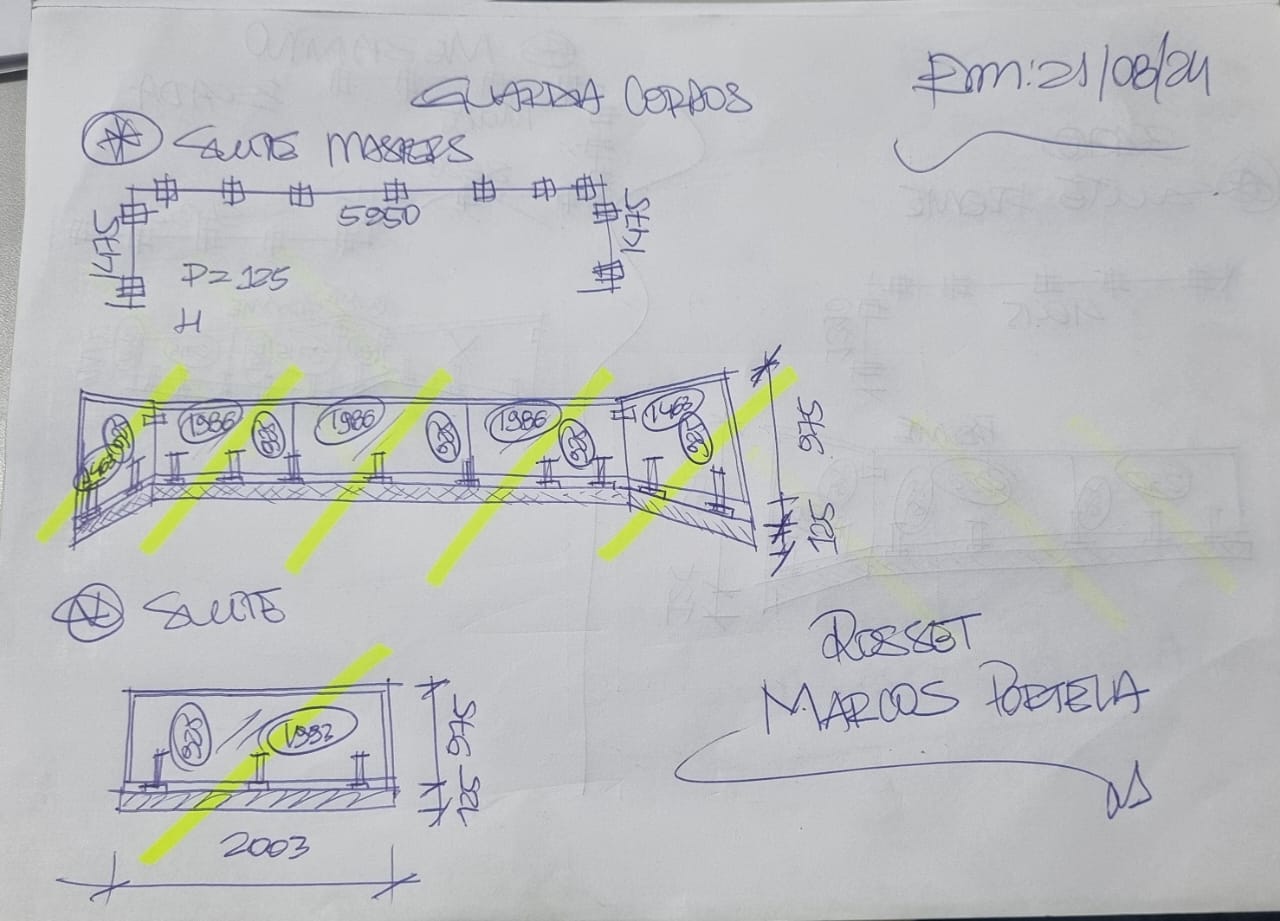 GUARDA CORPOS
Em: 21/08/24
SUITE MASTERS
5950
1475
1475
P=125
H
1463
1986
1986
1986
1463
975
125
SUITE
925
1993
975
125
2003
ROSSET
MARCOS PORTELA